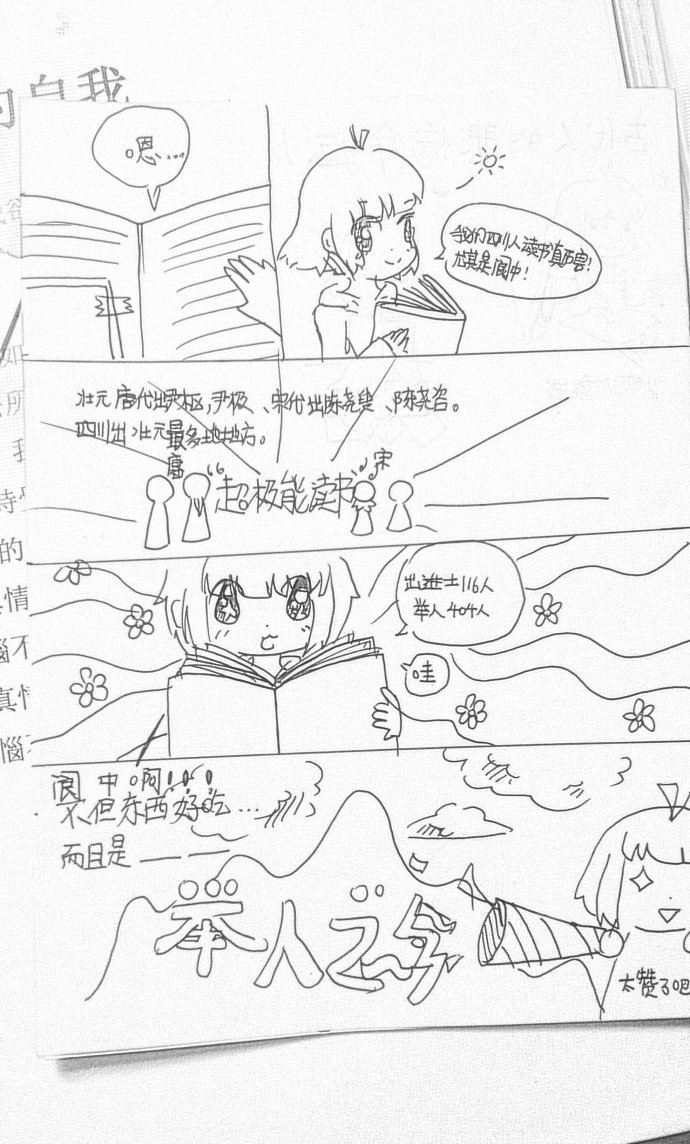 的自我
嗯……
我们四川人读书真厉害!
尤其是阆中!
状元唐代出尹枢,尹极、宋代出陈尧叟、陈尧咨。
四川出状元最多地地方。
唐
宋
“超极能读书”
出进士116人
举人404人
哇
阆中啊!!!
不但东西好吃…
而且是——
举人之乡
太赞了吧
情
的
真情
恼